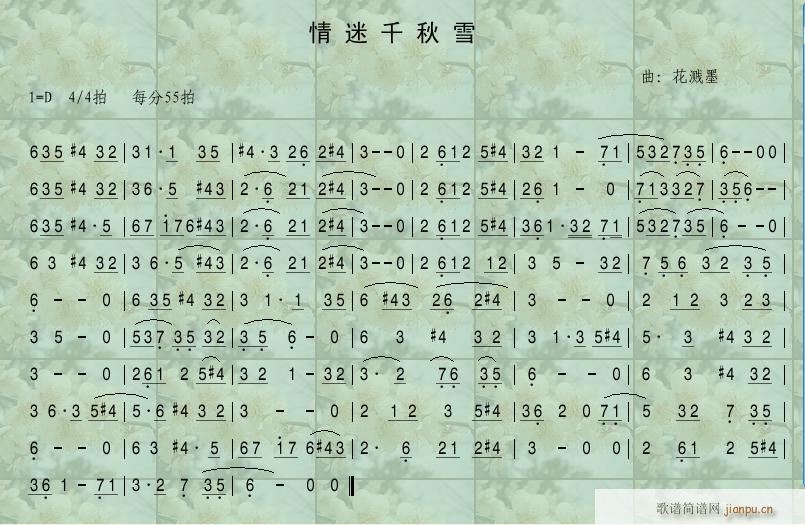 情迷千秋雪
曲: 花溅墨
1=D 4/4拍 每分55拍
635 #4 32|31·1 35|#4·3 26|2#4|3--0|2 612 5#4|32 1 - 71|532735|6--00|
635 #4 32|36·5 #43|2·6 21|2#4|3--0|2 612 5#4|26 1 - 0|713327|356--|
635 #4·5|67 176#43|2·6 21|2#4|3--0|2 612 5#4|361·32 71|532735|6 - -0|
6 3 #4 32|3 6·5 #43|2·6 21|2#4|3--0|2 612 12|3 5 - 32|7 56 32 35|
6 - - 0|6 35 #4 32|3 1·1 35|6 #43 26 2#4|3 - - 0|2 12 3 23|
3 5 - 0|537 35 32|35 6 - 0|6 3 #4 32|3 1·3 5#4|5· 3 #4 3 2|
3 - - 0|261 2 5#4|32 1 - 32|3· 2 76 35|6 - - 0|6 3 #4 32|
3 6·3 5#4|5·6 #4 3 2|3 - - 0|2 12 3 5#4|36 2 0 71|5 32 7 35|
6 - - 0|6 3 #4· 5|67 17 6#43|2· 6 21 2#4|3 - 0 0|2 61 2 5#4|
36 1 - 71|3·2 7 35|6 - 0 0‖
歌谱简谱网 jianpu.cn